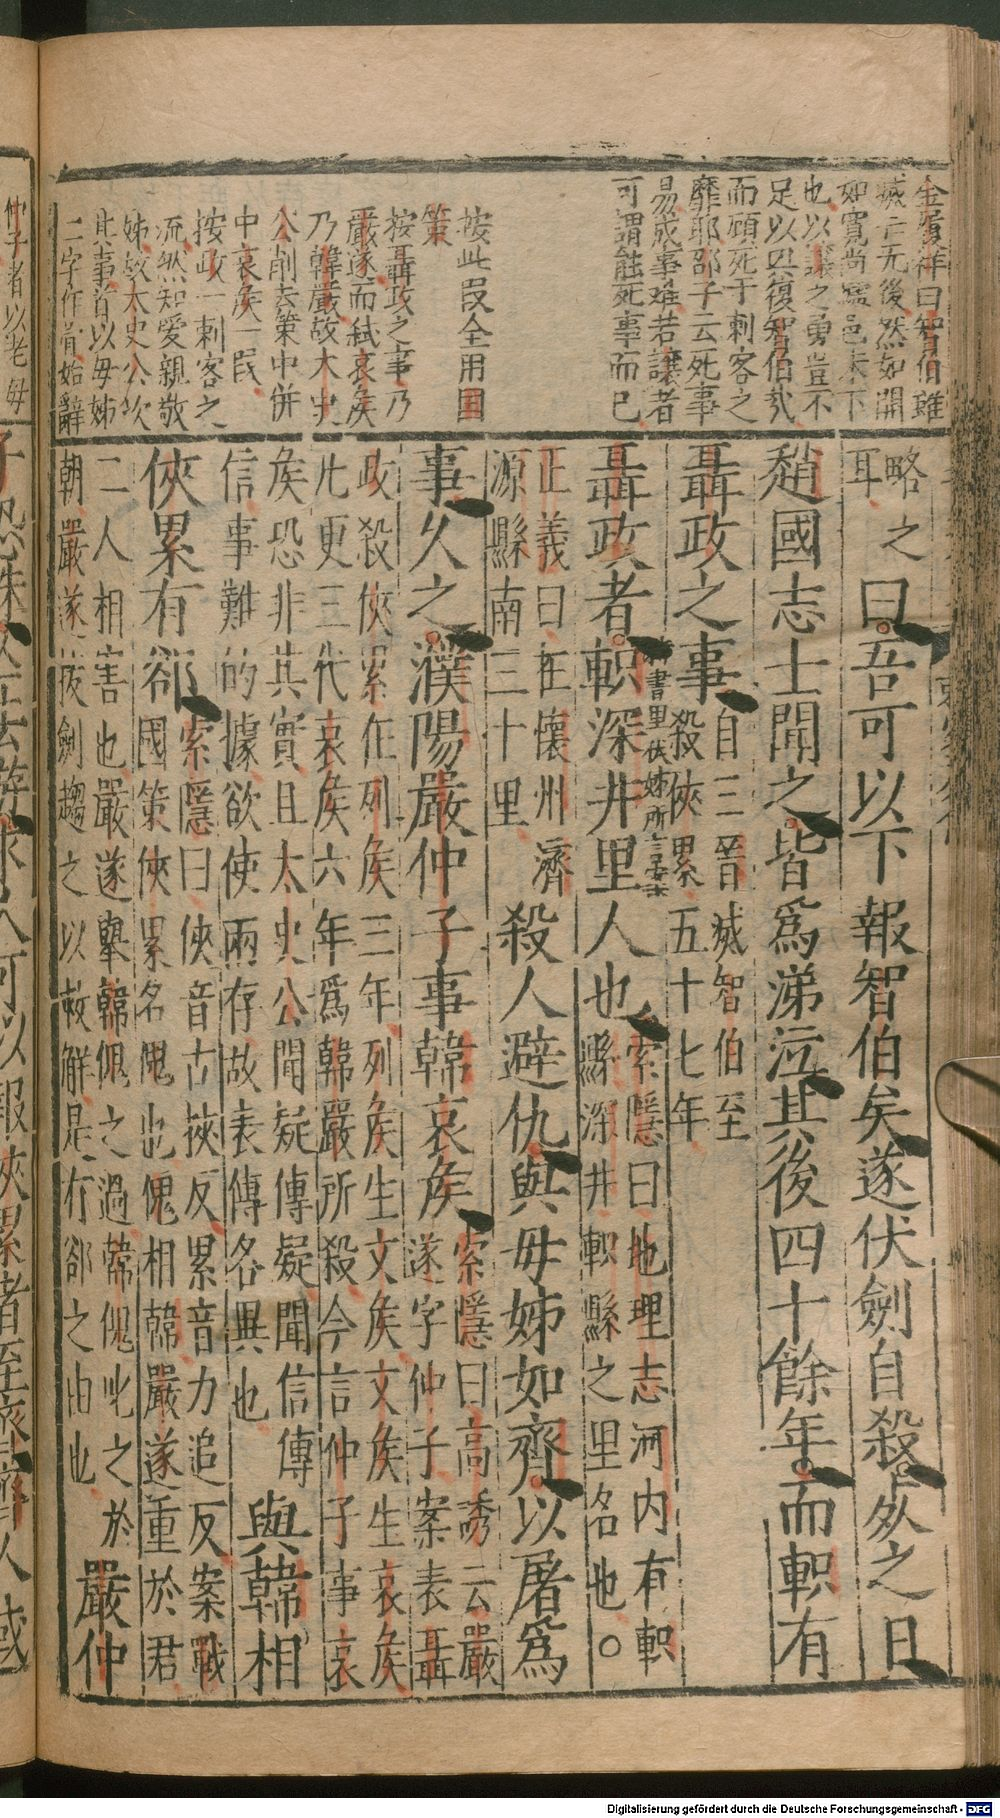 金履祥曰智伯雖
滅亡无後然如開
如寬尚據邑未下
也以讓之勇豈不
足以興復智伯哉
而顧死于刺客之
靡耶邵子云死事
易成事难若讓者
可謂能死事而已
按此段全用国
策
按聶政之事乃
嚴遂而弑哀矦
乃韓嚴故大史
公削去策中併
中哀矦一段
按政一刺客之
流然知愛親敬
姊故太史公於
其事首以母姊
二字作骨始辭
略之
耳
曰吾可以下報智伯矣遂伏劍自殺死之日
趙國志士聞之皆爲涕泣其後四十餘年而軹有
聶政之事
自三晉滅智伯至
殺俠累五十七年
聶政者軹深井里人也
索隱曰地理志河内有軹
縣深井軹縣之里名也○
正義曰在懷州濟
源縣南三十里
殺人避仇與母姊如齊以屠爲
事久之濮陽嚴仲子事韓哀矦
索隱曰高誘云嚴
遂字仲子案表聶
政殺俠累在列矦三年列矦生文矦文矦生哀矦
凡更三代哀矦六年爲韓嚴所殺今言仲子事哀
矦恐非其實且太史公聞疑傳疑聞信傳
信事難的據欲使兩存故表傳各異也
與韓相
俠累有郤
索隱曰俠音古挾反累音力追反案戰
國策俠累名傀也傀相韓嚴遂重於君
二人相害也嚴遂舉韓傀之過韓傀叱之於
朝嚴遂拔劍趨之以救解是有郤之由也
嚴仲
仲子者以老母
Digitalisierung gefördert durch die Deutsche Forschungsgemeinschaft - DFG